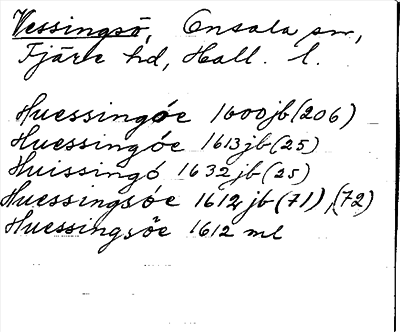 Vessingsö, Onsala sn,
Fjäre hd, Hall. l.
Huessingóe 1600 jb (206)
Huessingóe 1613 jb (25)
Huissingó 1632 jb (25)
Huessingsóe 1612 jb (71), (72)
Huessingsöe 1612 ml